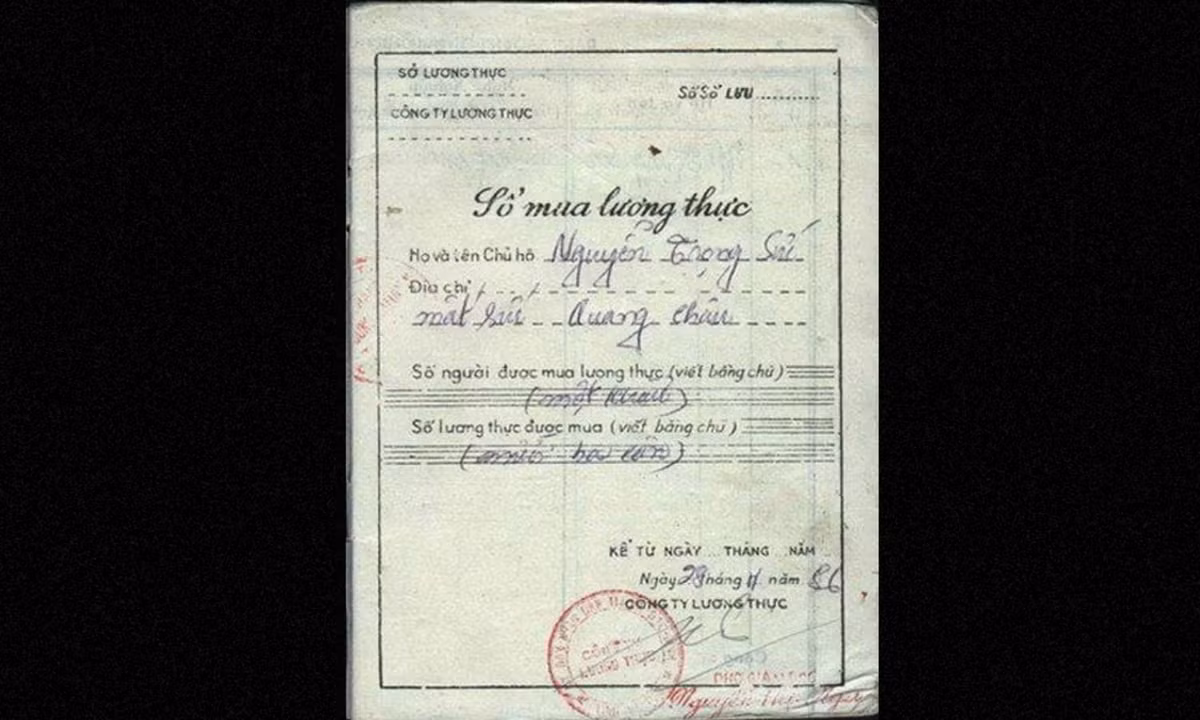 SỞ LƯƠNG THỰC
Số Sổ LƯU
CÔNG TY LƯƠNG THỰC
Sổ mua lương thực
Họ và tên Chủ hộ Nguyễn Trọng Sứ
Địa chỉ
mắt sứ Quang Châu
Số người được mua lương thực (viết bằng chữ)
(một khẩu)
Số lương thực được mua (viết bằng chữ)
(mười ba cân)
KỂ TỪ NGÀY THÁNG NĂM
Ngày 28 tháng 11 năm 86
CÔNG TY LƯƠNG THỰC
PHÓ GIÁM ĐỐC
Nguyễn